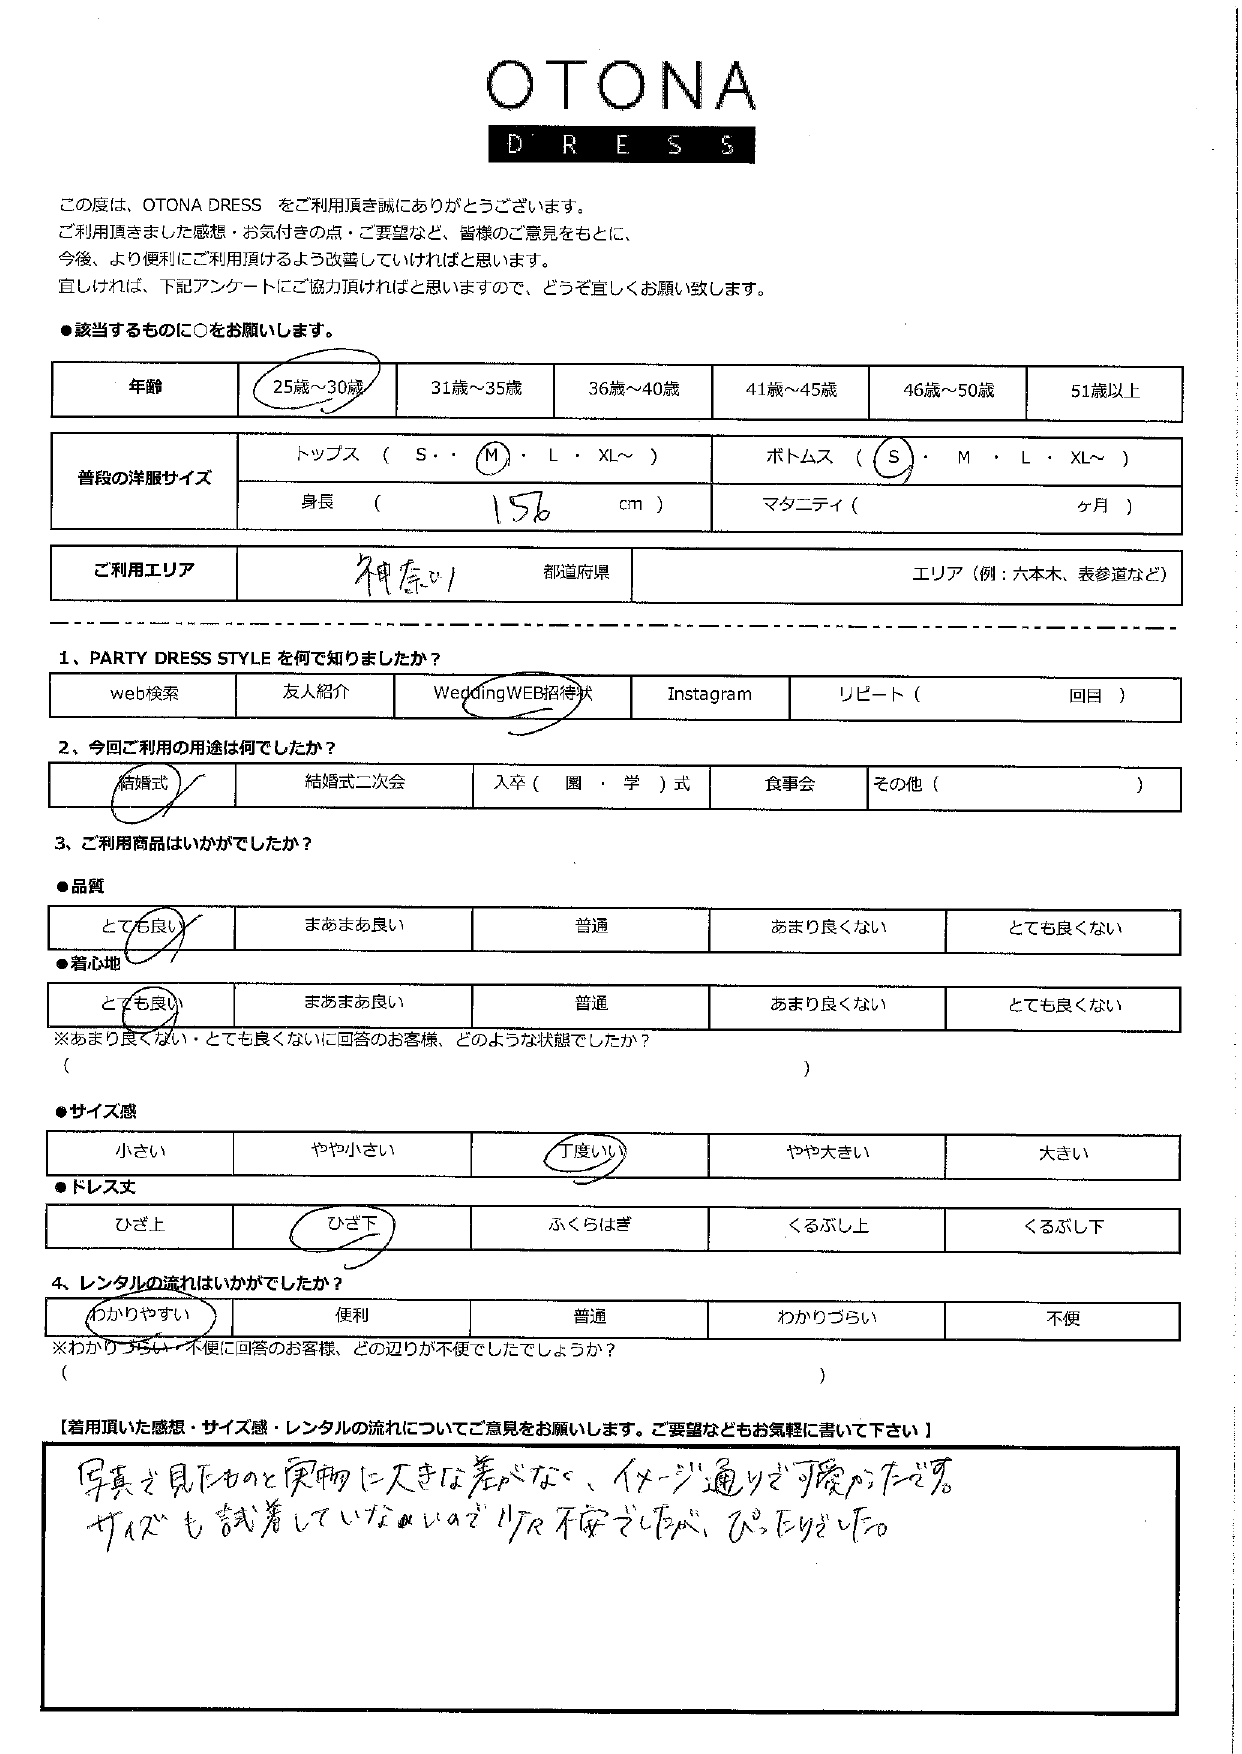 OTONA
DRESS
この度は、OTONA DRESS をご利用頂き誠にありがとうございます。
ご利用頂きました感想・お気付きの点・ご要望など、皆様のご意見をもとに、
今後、より便利にご利用頂けるよう改善していければと思います。
宜しければ、下記アンケートにご協力頂ければと思いますので、どうぞ宜しくお願い致します。
●該当するものに○をお願いします。
年齢 25歳～30歳 31歳～35歳 36歳～40歳 41歳～45歳 46歳～50歳 51歳以上
普段の洋服サイズ
トップス ( S・・ M ・ L ・ XL～ ) ボトムス ( S ・ M ・ L ・ XL～ )
身長 ( 156 cm ) マタニティ ( ヶ月 )
ご利用エリア 神奈川 都道府県 エリア（例：六本木、表参道など）
1、PARTY DRESS STYLE を何で知りましたか？
web検索 友人紹介 WeddingWEB招待状 Instagram リピート ( 回目 )
2、今回ご利用の用途は何でしたか？
結婚式 結婚式二次会 入卒 ( 園 ・ 学 ) 式 食事会 その他 ( )
3、ご利用商品はいかがでしたか？
●品質
とても良い まあまあ良い 普通 あまり良くない とても良くない
●着心地
とても良い まあまあ良い 普通 あまり良くない とても良くない
※あまり良くない・とても良くないに回答のお客様、どのような状態でしたか？
( )
●サイズ感
小さい やや小さい 丁度いい やや大きい 大きい
●ドレス丈
ひざ上 ひざ下 ふくらはぎ くるぶし上 くるぶし下
4、レンタルの流れはいかがでしたか？
わかりやすい 便利 普通 わかりづらい 不便
※わかりづらい・不便に回答のお客様、どの辺りが不便でしたでしょうか？
( )
【着用頂いた感想・サイズ感・レンタルの流れについてご意見をお願いします。ご要望などもお気軽に書いて下さい】
写真で見たものと実物に大きな差がなく、イメージ通りで可愛かったです。
サイズも試着していないので少々不安でしたが、ぴったりでした。